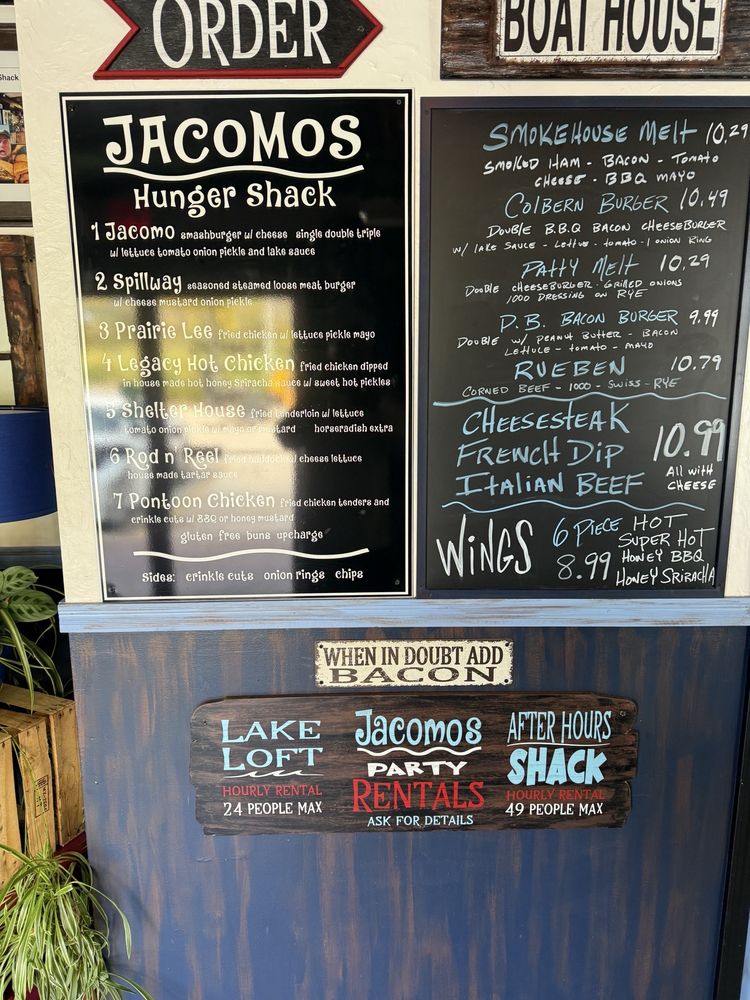 Shack
ORDER
BOAT HOUSE
JACOMOS
Hunger Shack
1 Jacomo smashburger w/ cheese single double triple
w/ lettuce tomato onion pickle and lake sauce
2 Spillway seasoned steamed loose meat burger
w/ cheese mustard onion pickle
3 Prairie Lee fried chicken w/ lettuce pickle mayo
4 Legacy Hot Chicken fried chicken dipped
in house made hot honey Sriracha sauce w/ sweet hot pickles
5 Shelter House fried tenderloin w/ lettuce
tomato onion pickle w/ mayo or mustard horseradish extra
6 Rod n' Reel fried haddock w/ cheese lettuce
house made tartar sauce
7 Pontoon Chicken fried chicken tenders and
crinkle cuts w/ BBQ or honey mustard
gluten free buns upcharge
Sides: crinkle cuts onion rings chips
SMOKEHOUSE MELT 10.29
SMOKED HAM - BACON - TOMATO
CHEESE - BBQ MAYO
COLBERN BURGER 10.49
DOUBLE B.B.Q BACON CHEESEBURGER
W/ LAKE SAUCE - LETTUE - TOMATO - 1 ONION RING
PATTY MELT 10.29
DOUBLE CHEESEBURGER - GRILLED ONIONS
1000 DRESSING ON RYE
P.B. BACON BURGER 9.99
DOUBLE W/ PEANUT BUTTER - BACON
LETTUCE - TOMATO - MAYO
RUEBEN 10.79
CORNED BEEF - 1000 - SWISS - RYE
CHEESESTEAK
FRENCH DIP 10.99
ITALIAN BEEF All with CHEESE
WINGS 6 PIECE 8.99
HOT
SUPER HOT
HONEY BBQ
HONEY SRIRACHA
WHEN IN DOUBT ADD
BACON
LAKE
LOFT
HOURLY RENTAL
24 PEOPLE MAX
Jacomos
PARTY
RENTALS
ASK FOR DETAILS
AFTER HOURS
SHACK
HOURLY RENTAL
49 PEOPLE MAX